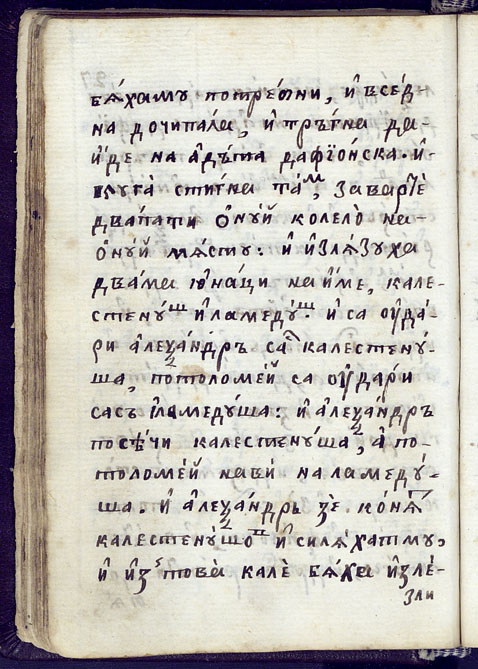 бѧ́хамꙋ потре́бни, и҆ всѣ́д-
на дочипа́ла, и҆ тръ́гна да-
и҆́де на а҆дъ́ша дафїо́нска. и҆-
куга̀ сти́гна та́ м, заварѐ
два́пати ѻ҆́нуй колело̀ на-
о҆́нуй мѧ́сту: и҆ и҆злѧ́зуха
два́ма ю҆на́ци на и҆́ме, кале-
стену́ш и҆ ламеду́ш. и҆ са оу҆да́-
ри а҆леѯа́ндръ са с калестену́-
ша, потоломе́й са оу҆да́ри
сасъ ламеду́ша: и҆ а҆леѯа́ндръ
посѣ́чи калестену́ша, а҆ по-
толоме́й навѝ на ламеду́-
ша. и҆ а҆леѯа́ндръ зѐ ко́нѧ т
калестену́шо п и҆ силѧ́хат му,
и҆ и҆з̾ това̀ калѐ бѧ́ха и҆зле́-
зли